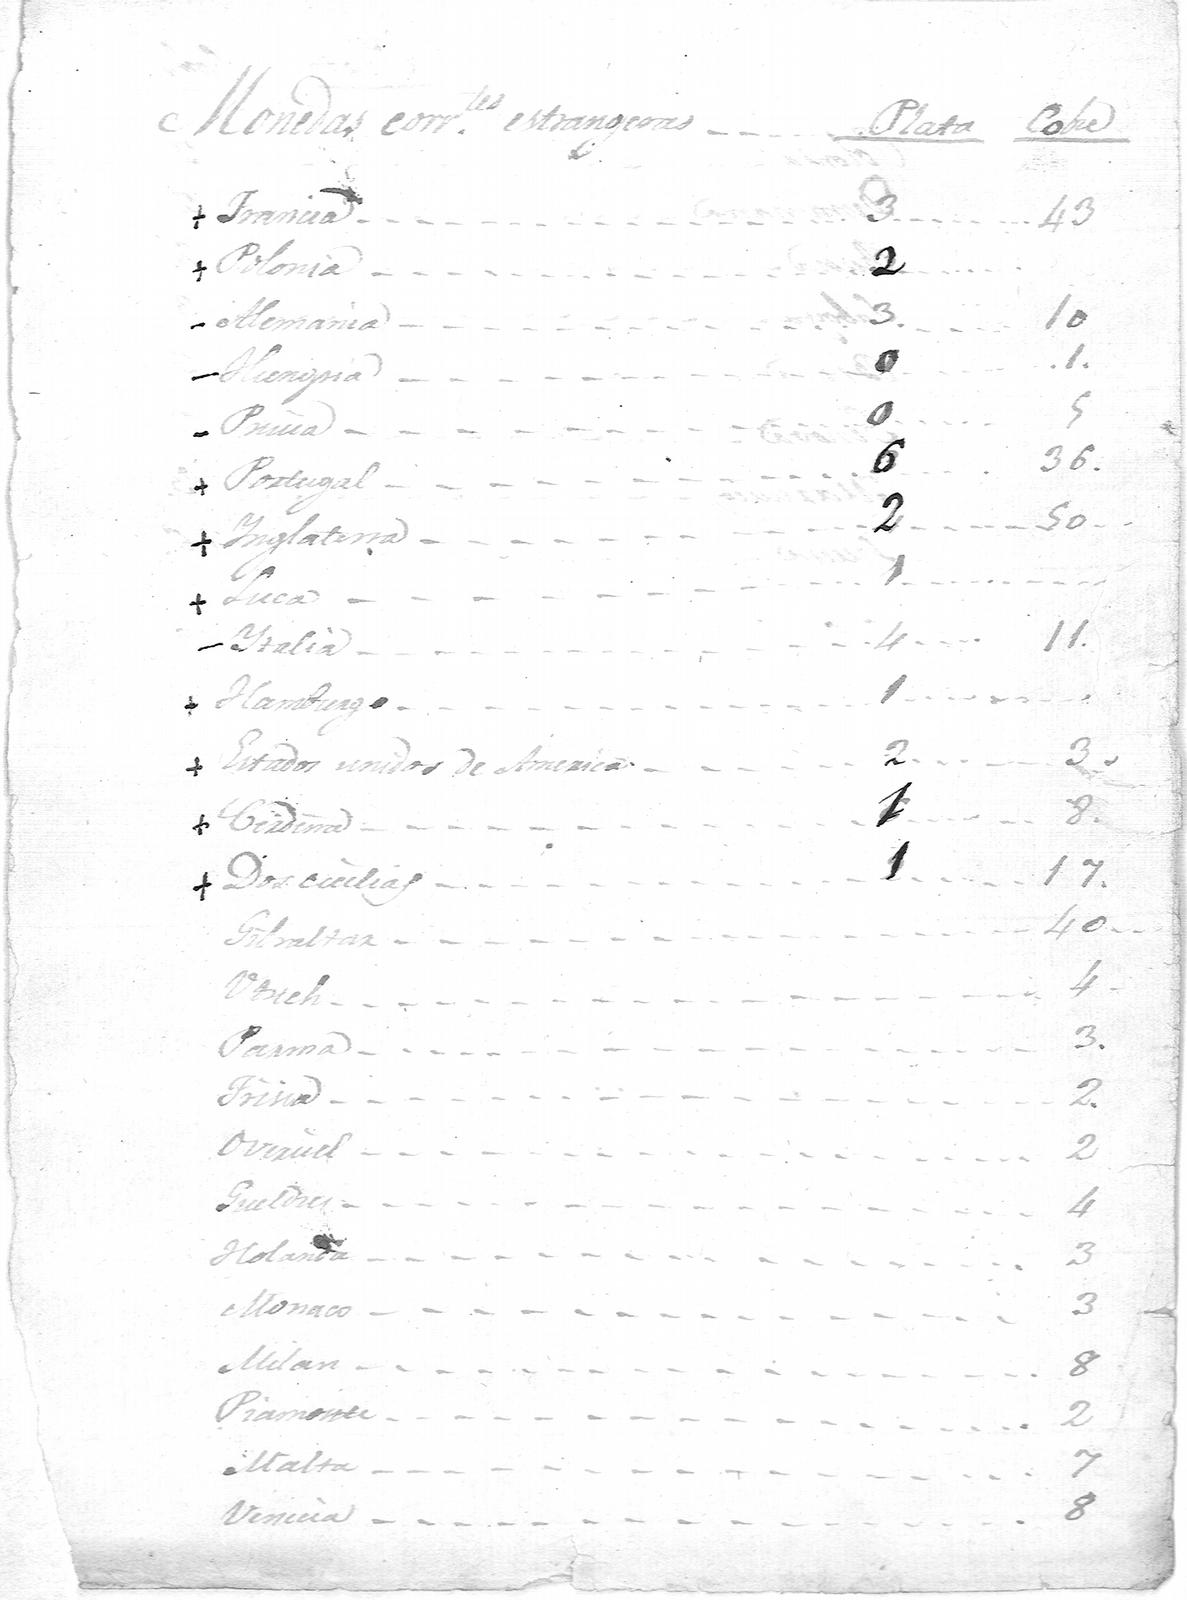 Monedas corr.tes estrangeras Plata Cobre
+ Francia 3 43
+ Polonia 2
- Alemania 3 10
- Hungria 0 1.
- Prusia 0 5
+ Portugal 6 36.
+ Ynglaterra 2 50
+ Luca 1
- Ytalia 4 11.
+ Hamburgo 1
+ Estados unidos de America 2 3.
+ Cerdeña 1 8.
+ Dos cicilias 1 17.
Gibraltar 40
Vtrech 4
Parma 3.
Frisia 2.
Overisel 2
Gueldres 4
Holanda 3
Monaco 3
Milan 8
Piamonte 2
Malta 7
Venecia 8